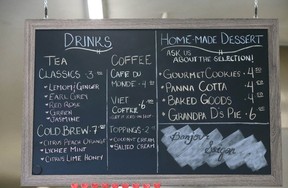 DRINKS
TEA
CLASSICS · 3
LEMON GINGER
EARL GREY
RED ROSE
GREEN
JASMINE
COLD BREW · 7
CITRUS PEACH ORANGE
LYCHEE MINT
CITRUS LIME HONEY
COFFEE
CAFE DU
MONDE · 4
VIET
COFFEE · 6
TOPPINGS · 2
COCONUT CREAM
SALTED CREAM
HOME-MADE DESSERT
ASK US
ABOUT THE SELECTION!
GOURMET COOKIES · 4
PANNA COTTA · 4
BAKED GOODS · 4
GRANDPA D'S PIE · 6
Bonjour